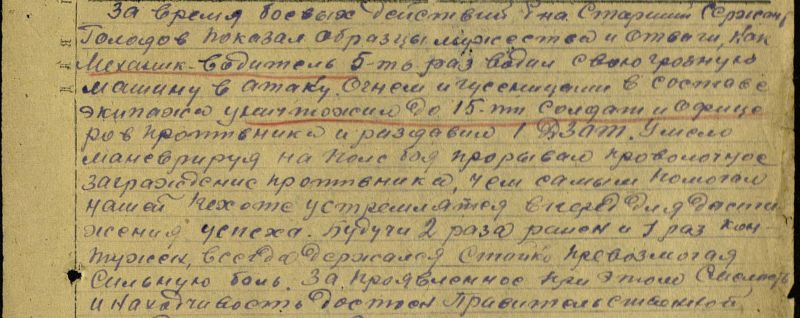 За время боевых действий т-на Старший Сержант
Голодов показал образцы мужества и отваги, как
Механик-водитель 5-ть раз водил свою грозную
машину в атаку. Огнем и гусеницами в составе
экипажа уничтожил до 15-ти солдат и офице
ров противника и раздавил 1 ДЗОТ. Умело
маневрируя на поле боя прорывал проволочное
заграждение противника, чем самым помогал
нашей пехоте устремлятся вперед для дости
жения успеха. Будучи 2 раза ранен и 1 раз кон-
тужен, всегда держался стойко превозмогая
сильную боль. За проявленное при этом смелость
и находчивость достоен Правительственной